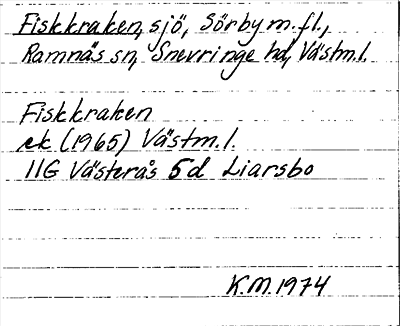 Fiskkraken, sjö, Sörby m.fl.,
Ramnäs sn, Snevringe hd, Västm.l.
Fiskkraken
ek (1965) Västm.l.
11G Västerås 5d Liarsbo
K.M. 1974